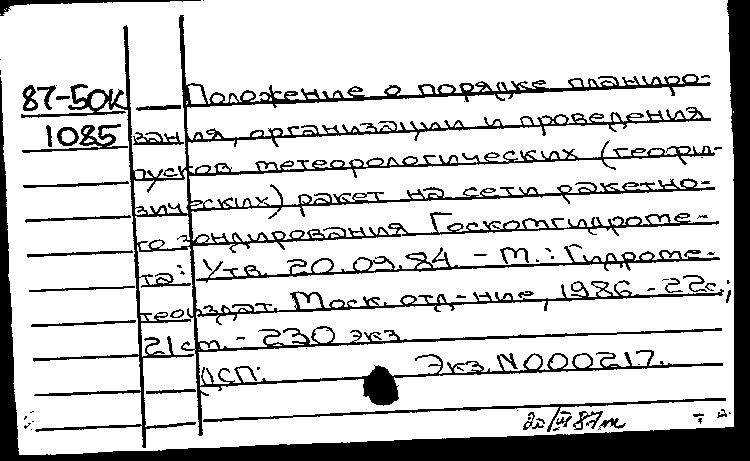 87-50К
1085
Положение о порядке планиро-
вания, организации и проведения
пусков метеорологических (геофи-
зических) ракет на сети ракетно-
го зондирования Госкомгидроме-
та: Утв. 20.09.84. - М.: Гидроме-
теоиздат. Моск. отд-ние, 1986. - 22с.;
21 см. - 230 экз.
ДСП. Экз. N000217.